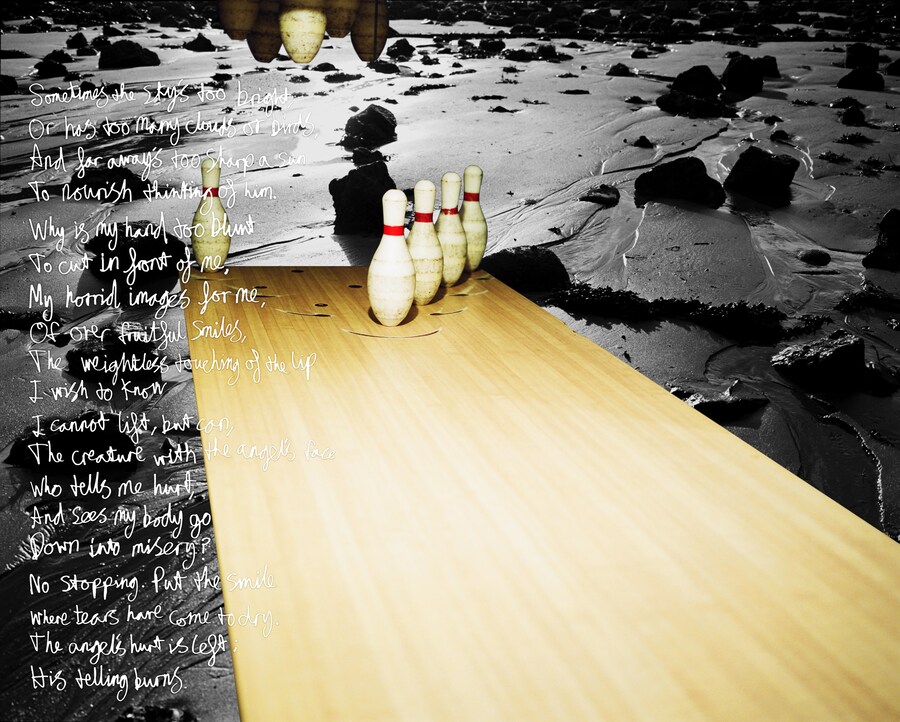 Sometimes the sky's too bright,
Or has too many clouds or birds,
And far away's too sharp a sun
To nourish thinking of him.
Why is my hand too blunt
To cut in front of me,
My horrid images for me,
Of over fruitful smiles,
The weightless touching of the lip
I wish to know
I cannot lift, but can,
The creature with the angel's face
Who tells me hurt,
And sees my body go
Down into misery?
No stopping. Put the smile
Where tears have come to dry.
The angel's hurt is left;
His telling burns.